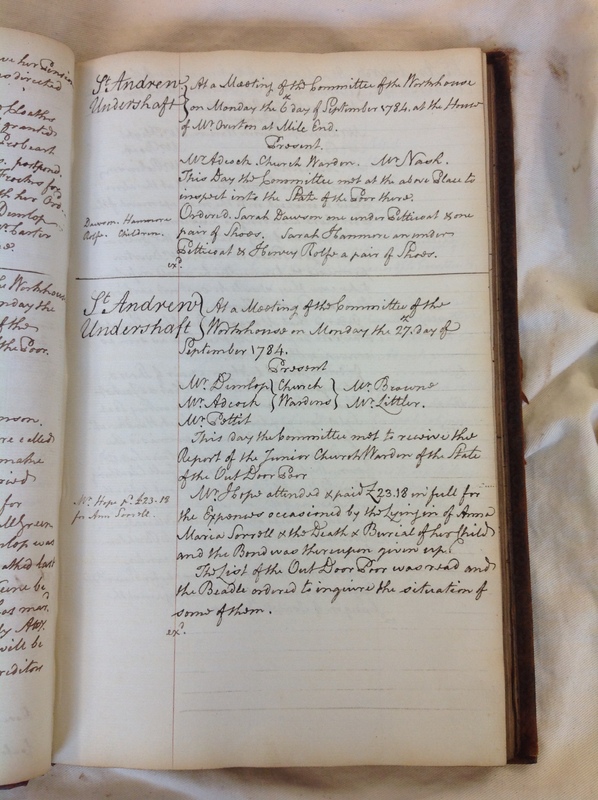 ve her Pension
so directed
Cloaths
granted
postpond.
Frocks for
th her
Dunlop
Mr. Carter
St. Andrew Undershaft } At a Meeting of the Committee of the Workhouse
on Monday the 6th day of September 1784. at the House
of Mr. Overton at Mile End.
Present.
Mr. Adcock. Church Warden. Mr. Nash.
This Day the Committee met at the above Place to
inspect into the State of the Poor there.
Dawson. Hanmore
Rolfe. Children.
Ordered. Sarah Dawson one under Petticoat & one
pair of Shoes. Sarah Hanmore an under
Petticoat & Henery Rolfe a pair of Shoes.
exd.
e Workhouse
onday the
of the
the Poor.
erson.
re called
make
for
Green
nlop was
last
mar.
will be
reditors
St. Andrew Undershaft } At a Meeting of the Committee of the
Workhouse on Monday the 27th. day of
September 1784.
Present
Mr. Dunlop } Church { Mr. Browne
Mr. Adcock } Wardens { Mr. Littler.
Mr. Pettit
This day the Committee met to receive the
Report of the Junior Church Warden of the State
of the Out Door Poor
Mr. Hope pd. £23-18
for Ann Sorrell.
Mr. Hope attended & paid £23.18 in full for
the Expenses occasioned by the Lying in of Anna
Maria Sorrell & the Death & Burial of her Child
and the Bond was thereupon given up.
The List of the Out Door Poor was read and
the Beadle ordered to inquire the situation of
some of them.
exd.